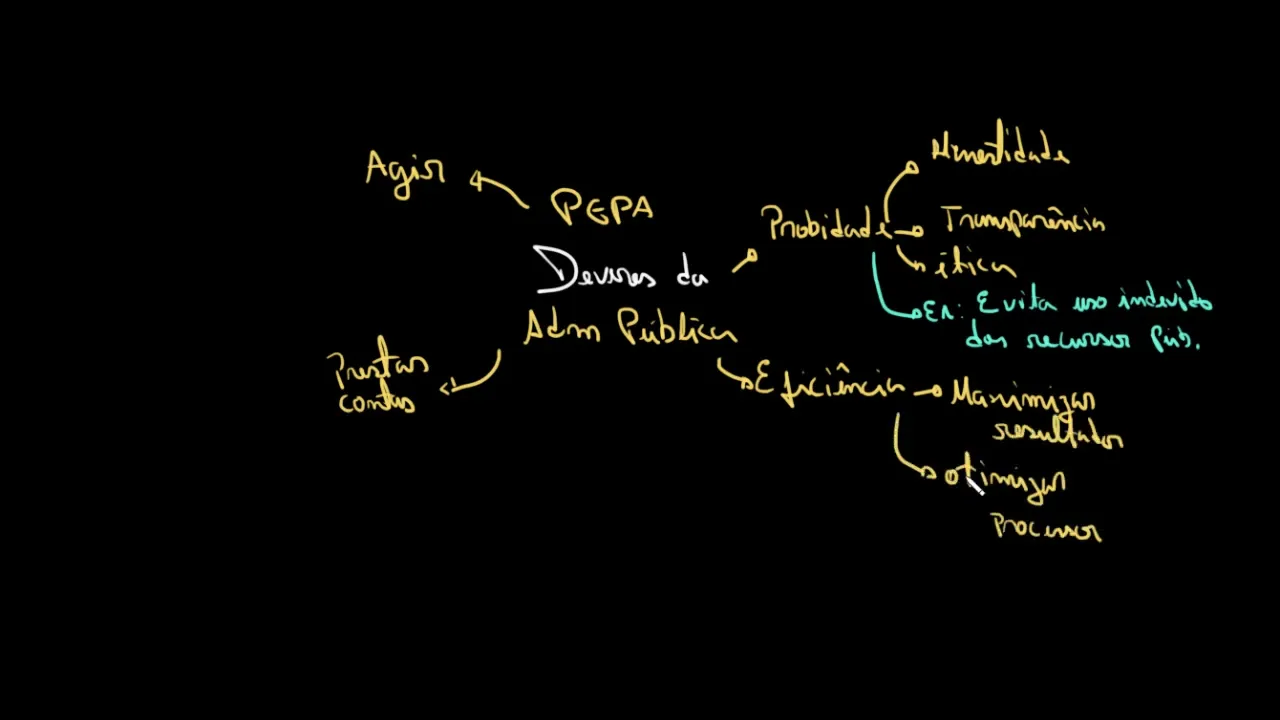 Agir
PEPA
Deveres da
Adm Pública
Prestar
contas
Probidade
Honestidade
Transparência
ética
Ex: Evita uso indevido
dos recursos Púb.
Eficiência
Maximizar
resultados
otimizar
Processos